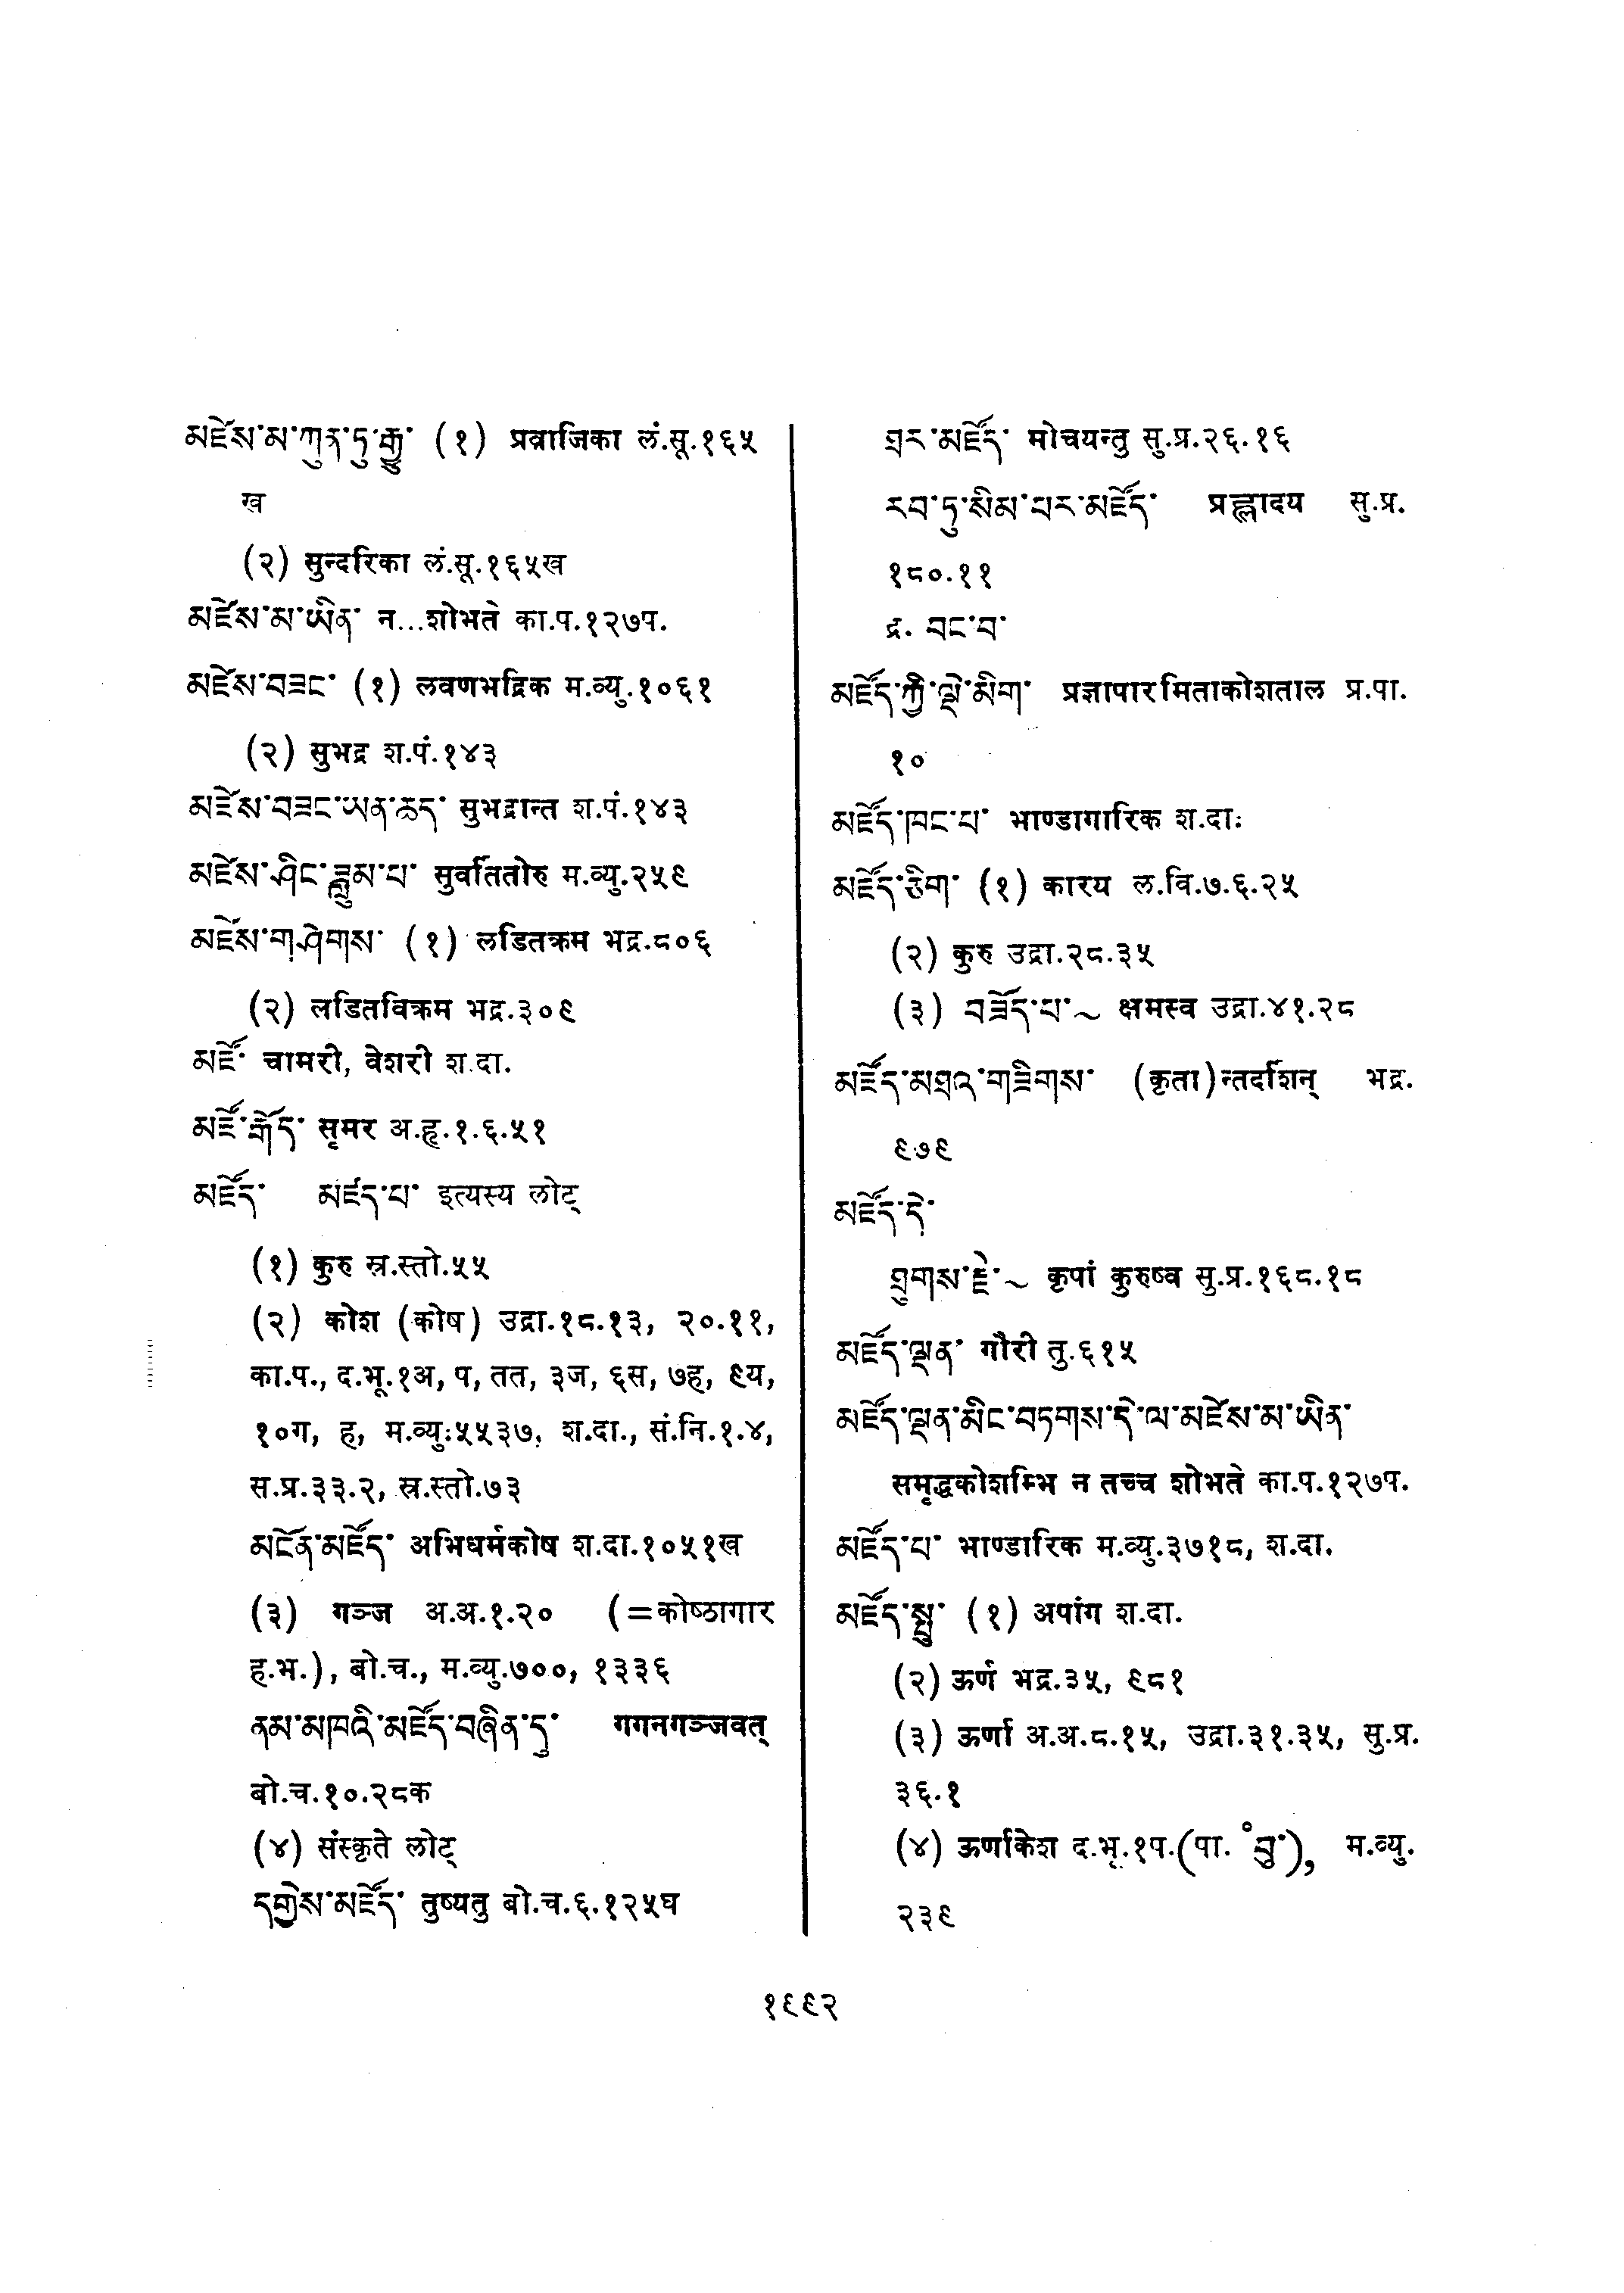 མཛེས་མ་ཀུན་ཏུ་རྒྱུ་ (१) प्रव्राजिका लं.सू.१६५
ख
(२) सुन्दरिका लं.सू.१६५ख
མཛེས་མ་ཡིན་ न...शोभते का.प.१२७प.
མཛེས་བཟང་ (१) लवणभद्रिक म.व्यु.१०६१
(२) सुभद्र श.पं.१४३
མཛེས་བཟང་ཡན་ཆད་ सुभद्रान्त श.पं.१४३
མཛེས་ཤིང་ཟླུམ་པ་ सुवर्तितोरु म.व्यु.२५९
མཛེས་གཤེགས་ (१) लडितक्रम भद्र.८०६
(२) लडितविक्रम भद्र.३०९
མཛོ་ चामरी, वेशरी श.दा.
མཛོ་རྒོད་ सृमर अ.हृ.१.६.५१
མཛོད་ མཛད་པ་ इत्यस्य लोट्
(१) कुरु स्र.स्तो.५५
(२) कोश (कोष) उद्रा.१८.१३, २०.११,
का.प., द.भू.१अ, प, तत, ३ज, ६स, ७ह, ९य,
१०ग, ह, म.व्युः५५३७, श.दा., सं.नि.१.४,
स.प्र.३३.२, स्र.स्तो.७३
མངོན་མཛོད་ अभिधर्मकोष श.दा.१०५१ख
(३) गञ्ज अ.अ.१.२० (=कोष्ठागार
ह.भ.), बो.च., म.व्यु.७००, १३३६
ནམ་མཁའི་མཛོད་བཞིན་དུ་ गगनगञ्जवत्
बो.च.१०.२८क
(४) संस्कृते लोट्
དགྱེས་མཛོད་ तुष्यतु बो.च.६.१२५घ
ཐར་མཛོད་ मोचयन्तु सु.प्र.२६.१६
རབ་ཏུ་སིམ་པར་མཛོད་ प्रह्लादय सु.प्र.
१८०.११
द्र. བང་བ་
མཛོད་ཀྱི་ལྡེ་མིག་ प्रज्ञापारमिताकोशताल प्र.पा.
१०
མཛོད་ཁང་པ་ भाण्डागारिक श.दाः
མཛོད་ཅིག་ (१) कारय ल.वि.७.६.२५
(२) कुरु उद्रा.२८.३५
(३) བཟོད་པ་~ क्षमस्व उद्रा.४१.२८
མཛོད་མཐའ་གཟིགས་ (कृता)न्तर्दाशन् भद्र.
९७९
མཛོད་དེ་
ཐུགས་རྗེ་~ कृपां कुरुष्व सु.प्र.१६८.१८
མཛོད་ལྡན་ गौरी तु.६१५
མཛོད་ལྡན་མིང་བཏགས་དེ་ལ་མཛེས་མ་ཡིན་
समृद्धकोशम्भि न तच्च शोभते का.प.१२७प.
མཛོད་པ་ भाण्डारिक म.व्यु.३७१८, श.दा.
མཛོད་སྤུ་ (१) अपांग श.दा.
(२) ऊर्ण भद्र.३५, ९८१
(३) ऊर्णा अ.अ.८.१५, उद्रा.३१.३५, सु.प्र.
३६.१
(४) ऊर्णाकेश द.भू.१प.(पा. ॰བུ་), म.व्यु.
२३९
१९९२